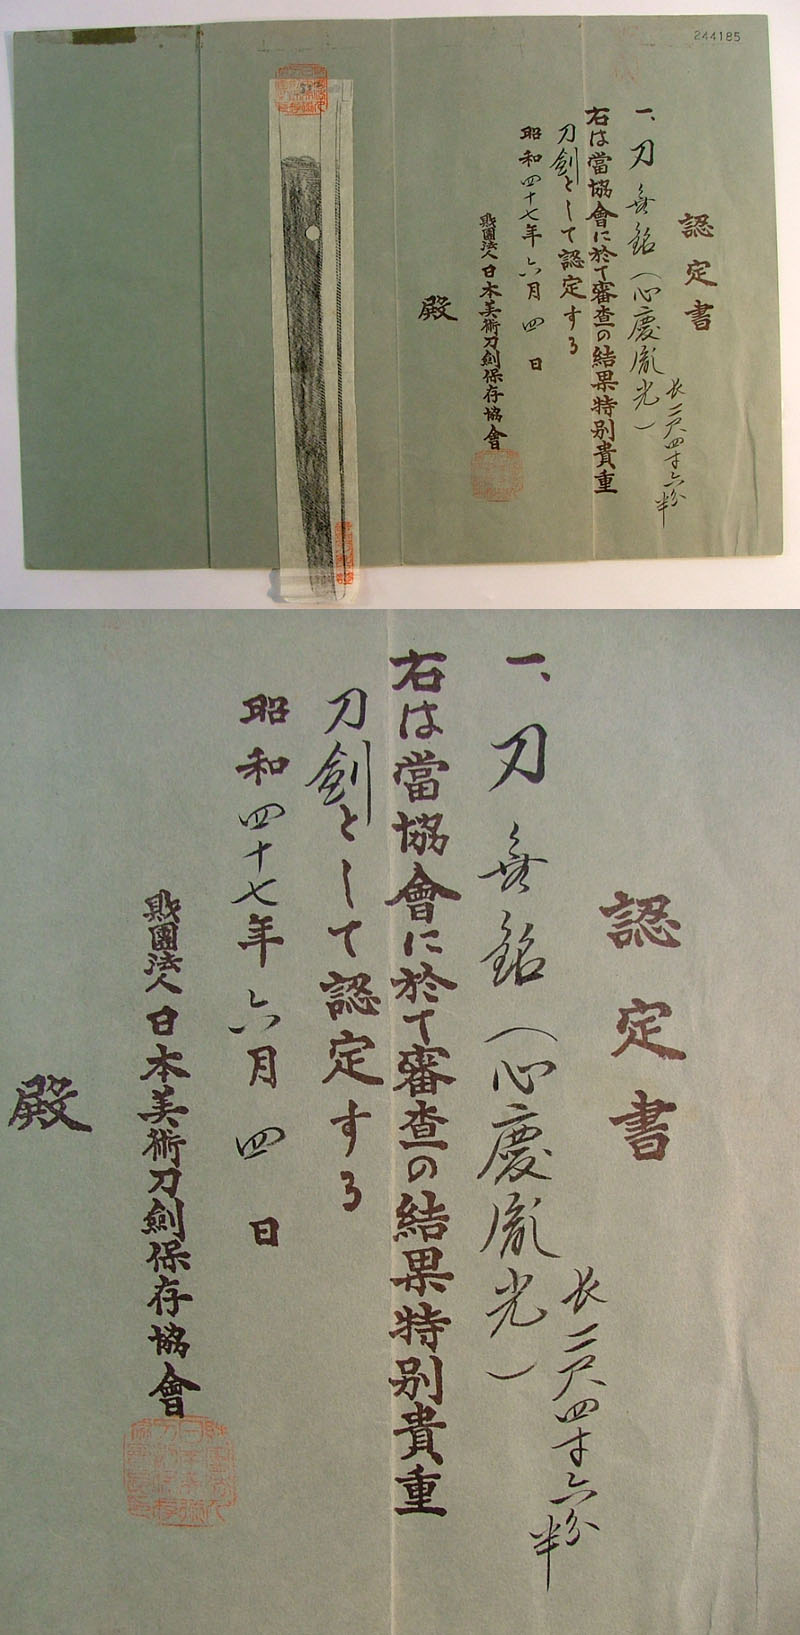 244185
認定書
一、刀 無銘(心慶胤光)
長二尺四寸六分半
右は當協會に於て審査の結果特別貴重
刀劍として認定する
昭和四十七年六月四日
財團法人日本美術刀劍保存協會
殿
認定書
一、刀 無銘(心慶胤光)
長二尺四寸六分半
右は當協會に於て審査の結果特別貴重
刀劍として認定する
昭和四十七年六月四日
財團法人日本美術刀劍保存協會
殿